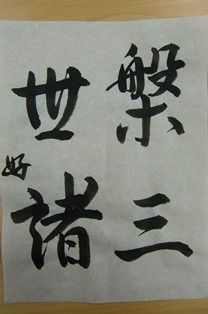 槃三
世諸
好